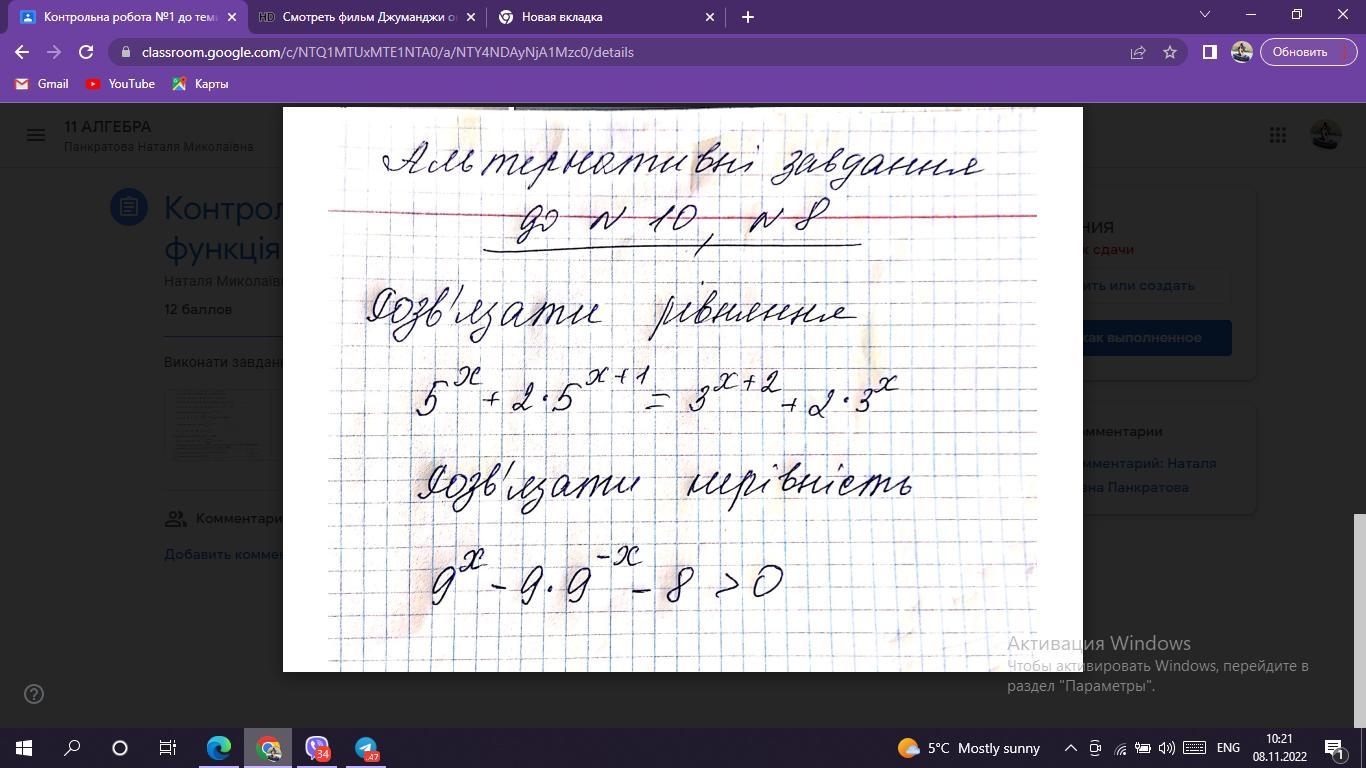 Контрольна робота №1 до тем
Смотреть фильм Джуманджи о
Новая вкладка
classroom.google.com/c/NTQ1MTUxMTE1NTA0/a/NTY4NDAyNjA1Mzc0/details
Обновить
Gmail YouTube Карты
11 АЛГЕБРА
Панкратова Наталя Миколаївна
Контрол
функція
Наталя Миколаївн
12 баллов
Виконати завдан
Комментари
Добавить комме
Альтернативні завдання
до N 10, N 8
Розв'язати рівняння
5^x + 2·5^(x+1) = 3^(x+2) + 2·3^x
Розв'язати нерівність
9^x - 9·9^(-x) - 8 > 0
НИЯ
к сдачи
ить или создать
как выполненное
омментарии
омментарий: Наталя
вна Панкратова
Активация Windows
Чтобы активировать Windows, перейдите в
раздел "Параметры".
34
47
5°C Mostly sunny
ENG
10:21
08.11.2022
1